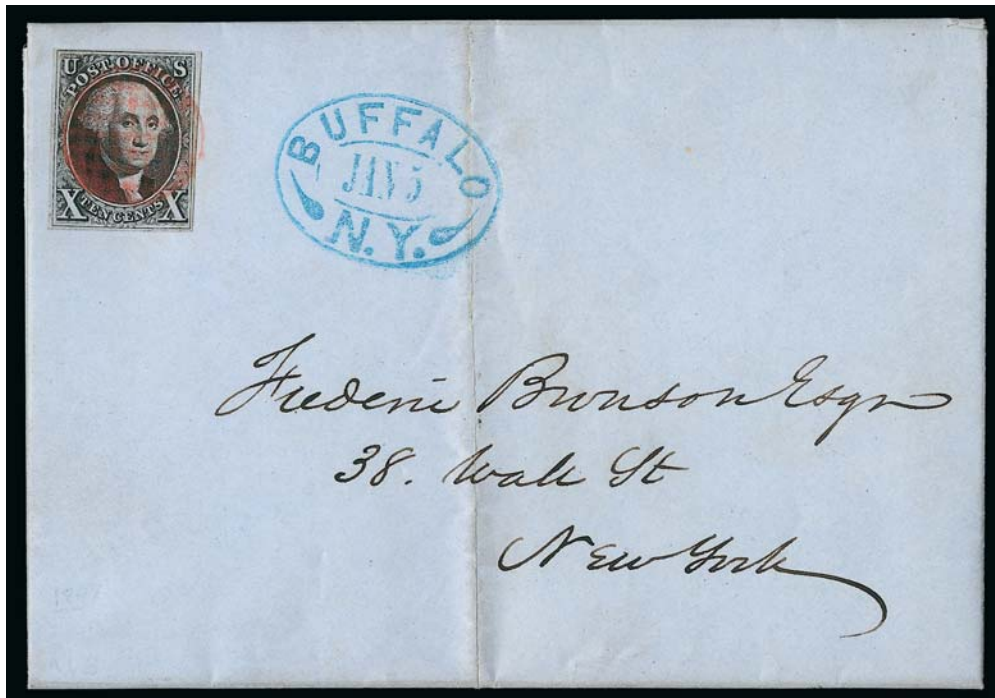 U S
POST OFFICE
X TEN CENTS X
BUFFALO
JAN 5
N.Y.
Frederic Bronson Esqr
38. Wall St
New York